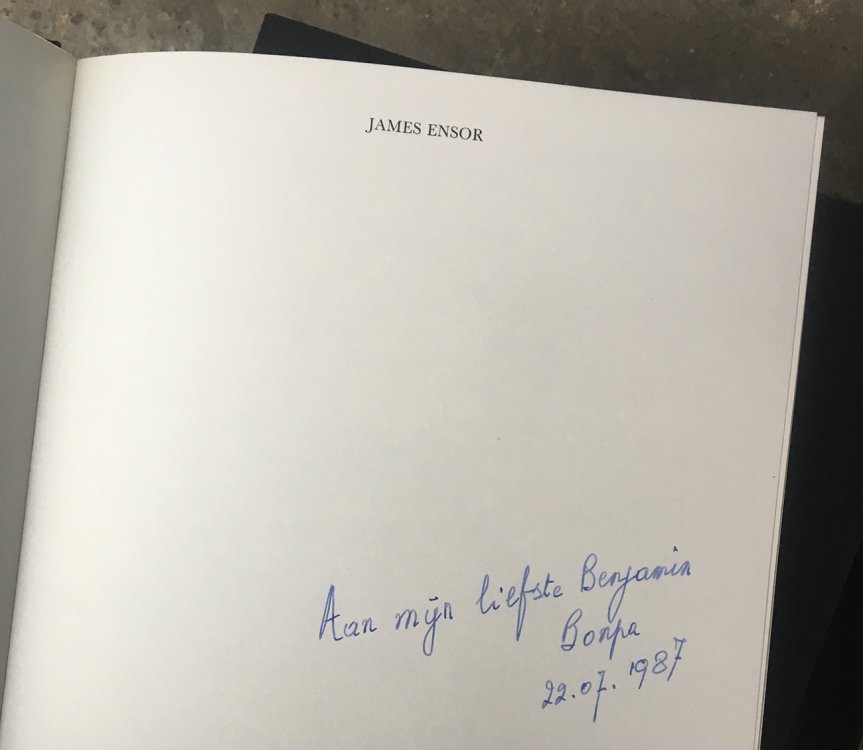 JAMES ENSOR
Aan mijn liefste Benjamin
Bonpa
22.07.1987